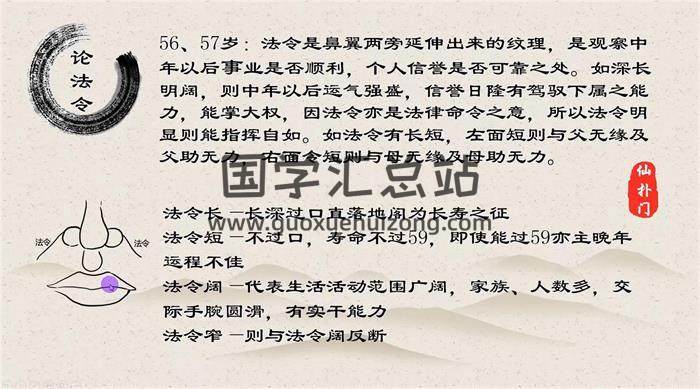 论法令
56、57岁：法令是鼻翼两旁延伸出来的纹理，是观察中
年以后事业是否顺利，个人信誉是否可靠之处。如深长
明阔，则中年以后运气强盛，信誉日隆有驾驭下属之能
力，能掌大权，因法令亦是法律命令之意，所以法令明
显则能指挥自如。如法令有长短，左面短则与父无缘及
父助无力，右面令短则与母无缘及母助无力。
国学汇总站
www.guoxuehuizong.com
仙扑门
法令长 —长深过口直落地阁为长寿之征
法令短 —不过口，寿命不过59，即使能过59亦主晚年
运程不佳
法令阔 —代表生活活动范围广阔，家族、人数多，交
际手腕圆滑，有实干能力
法令窄 —则与法令阔反断
法令
法令